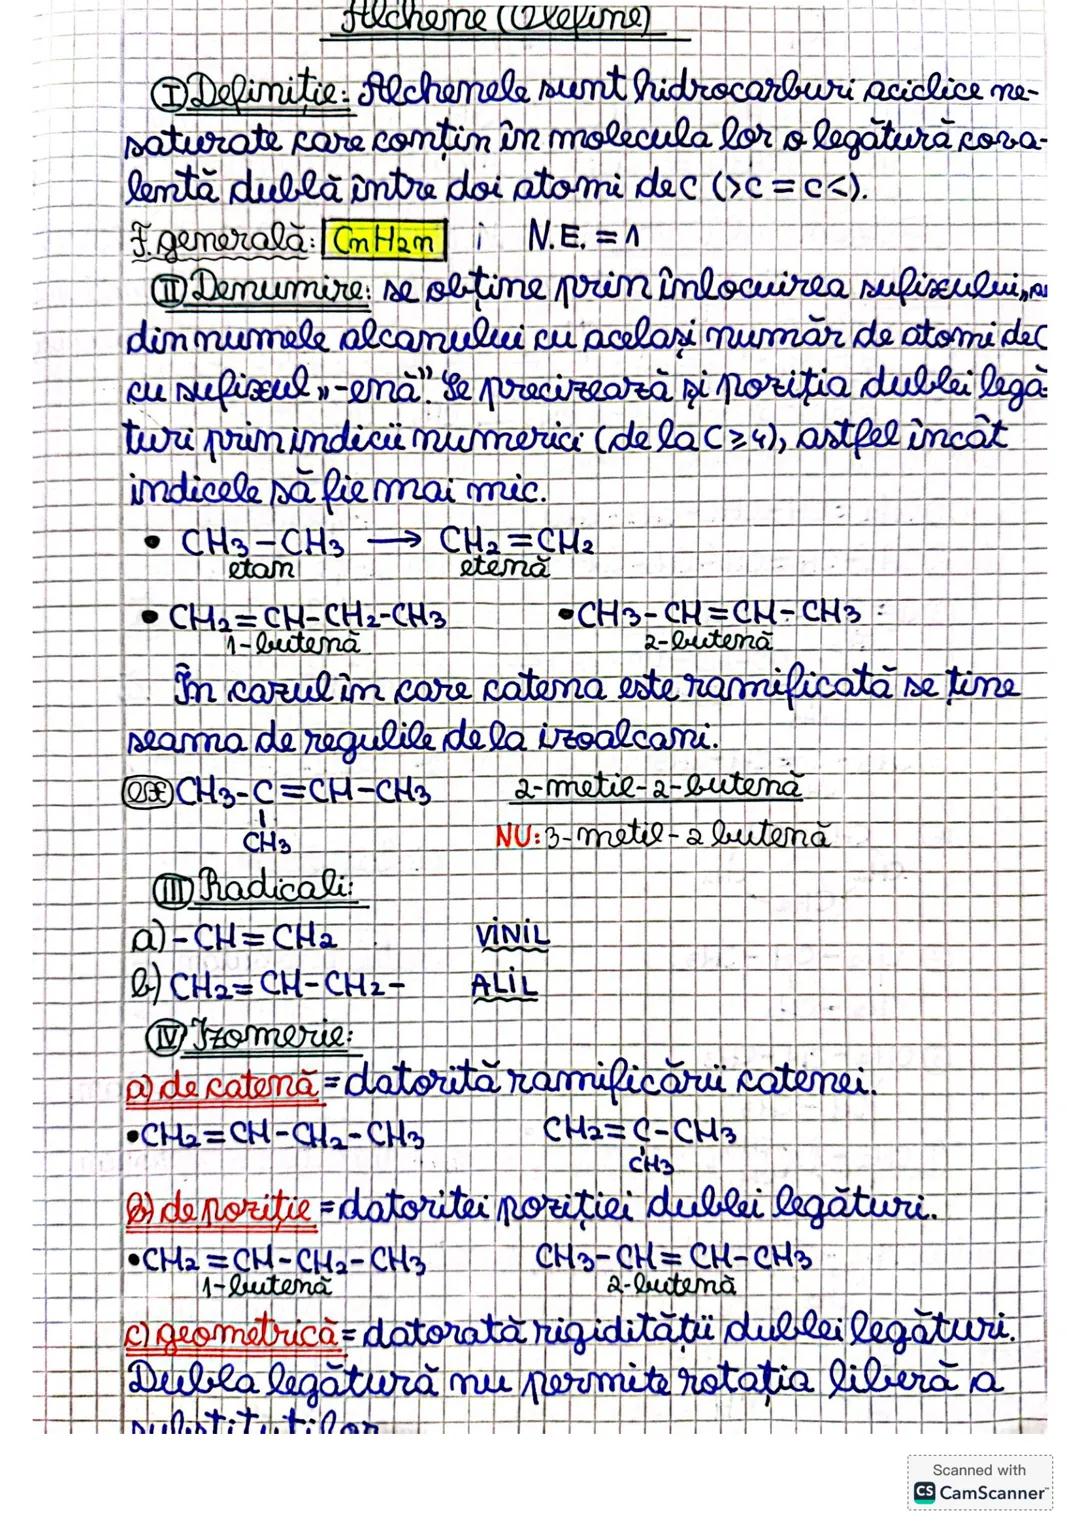 Alchene (Olefine)
I Definiție: Alchenele sunt hidrocarburi aciclice ne-
saturate care conțin în molecula lor o legătură cova-
lentă dublă între doi atomi de C (>C=C<).
F. generală: CnH2n ; N.E. = 1
II Denumire: se obține prin înlocuirea sufixului
din numele alcanului cu același număr de atomi de C
cu sufixul „-enă”. Se precizează și poziția dublei legă-
turi prin indicii numerici (de la C≥4), astfel încât
indicele să fie mai mic.
• CH3-CH3 → CH2=CH2
etan etenă
• CH2=CH-CH2-CH3 • CH3-CH=CH-CH3
1-butenă 2-butenă
În cazul în care catena este ramificată se ține
seama de regulile de la izoalcani.
ex CH3-C=CH-CH3 2-metil-2-butenă
CH3 NU: 3-metil-2 butenă
III Radicali:
a) -CH=CH2 VINIL
b) CH2=CH-CH2- ALIL
IV Izomerie:
a) de catenă = datorită ramificării catenei.
• CH2=CH-CH2-CH3 CH2=C-CH3
CH3
b) de poziție = datoritei poziției dublei legături.
• CH2=CH-CH2-CH3 CH3-CH=CH-CH3
1-butenă 2-butenă
c) geometrică = datorată rigidității dublei legături.
Dubla legătură nu permite rotația liberă a
substituților
Scanned with
CS CamScanner